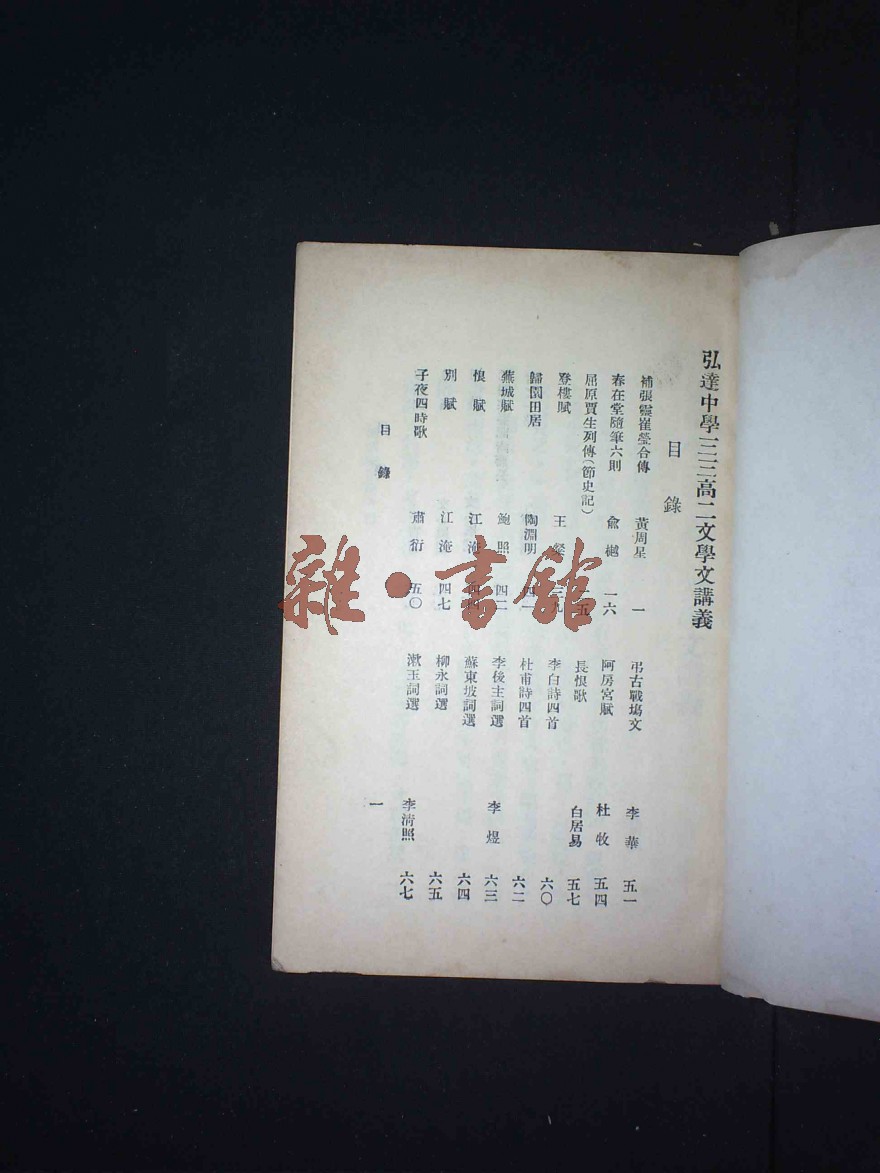 弘達中學二三三高二文學文講義
目錄
補張靈崔瑩合傳 黃周星 一
春在堂隨筆六則 俞樾 一六
屈原賈生列傳(節史記) 五
登樓賦 王粲 三九
歸園田居 陶淵明 四一
蕪城賦 鮑照 四二
恨賦 江淹 四四
別賦 江淹 四七
子夜四時歌 肅衍 五〇
弔古戰塲文 李華 五一
阿房宮賦 杜牧 五四
長恨歌 白居易 五七
李白詩四首 六〇
杜甫詩四首 六二
李後主詞選 李煜 六三
蘇東坡詞選 六四
柳永詞選 六五
漱玉詞選 李淸照 六七
目錄
一
雜·書館